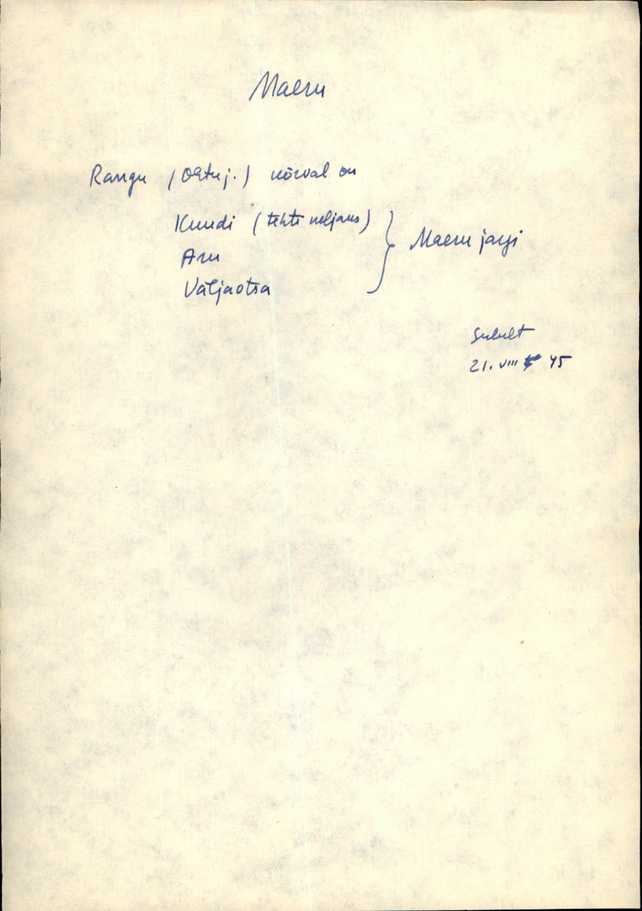 Maeru
Rangu (Ostuj.) kõrval on
Kuudi (tehti neljaks)
Aru
Väljaotsa
Maeru järgi
Suuliselt
21. VIII 45